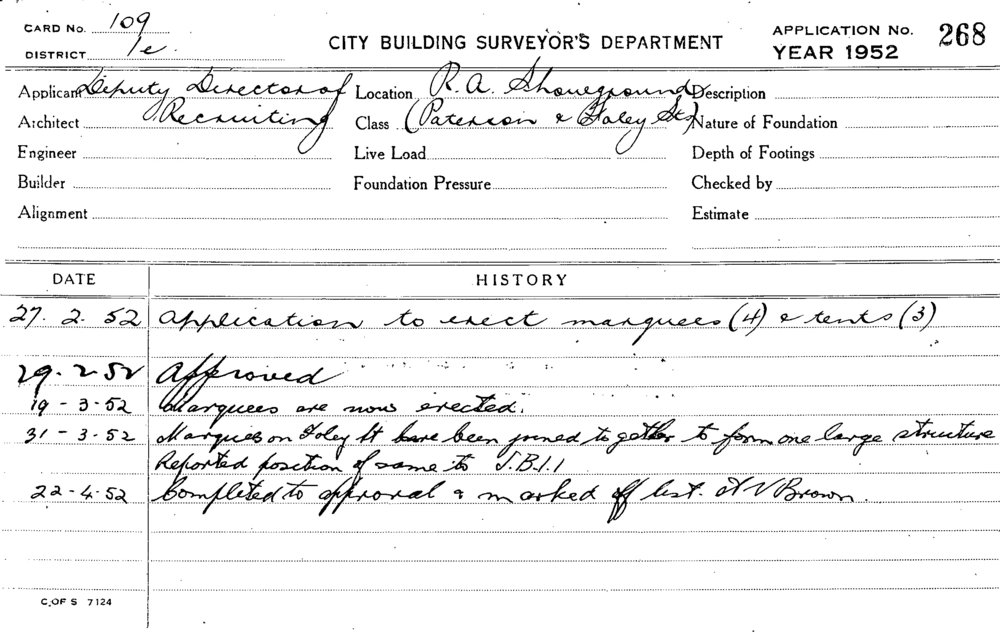 CARD No. 109
DISTRICT 1e.
CITY BUILDING SURVEYOR'S DEPARTMENT
APPLICATION No. 268
YEAR 1952
Applicant Deputy Director of Location R. A. Showground Description
Architect Recruiting Class (Paterson & Foley Sts) Nature of Foundation
Engineer Live Load Depth of Footings
Builder Foundation Pressure Checked by
Alignment Estimate
DATE HISTORY
27. 2. 52 Application to erect marquees (4) & tents (3)
29-2-52 Approved
19-3-52 Marquees are now erected.
31-3-52 Marquees on Foley St have been joined together to form one large structure
Reported position of same to
22-4-52 Completed to approval & marked off list. Brown.
C. OF S 7124